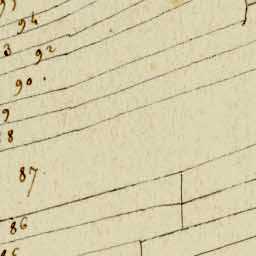 94
3
92
90.
9
8
87.
86